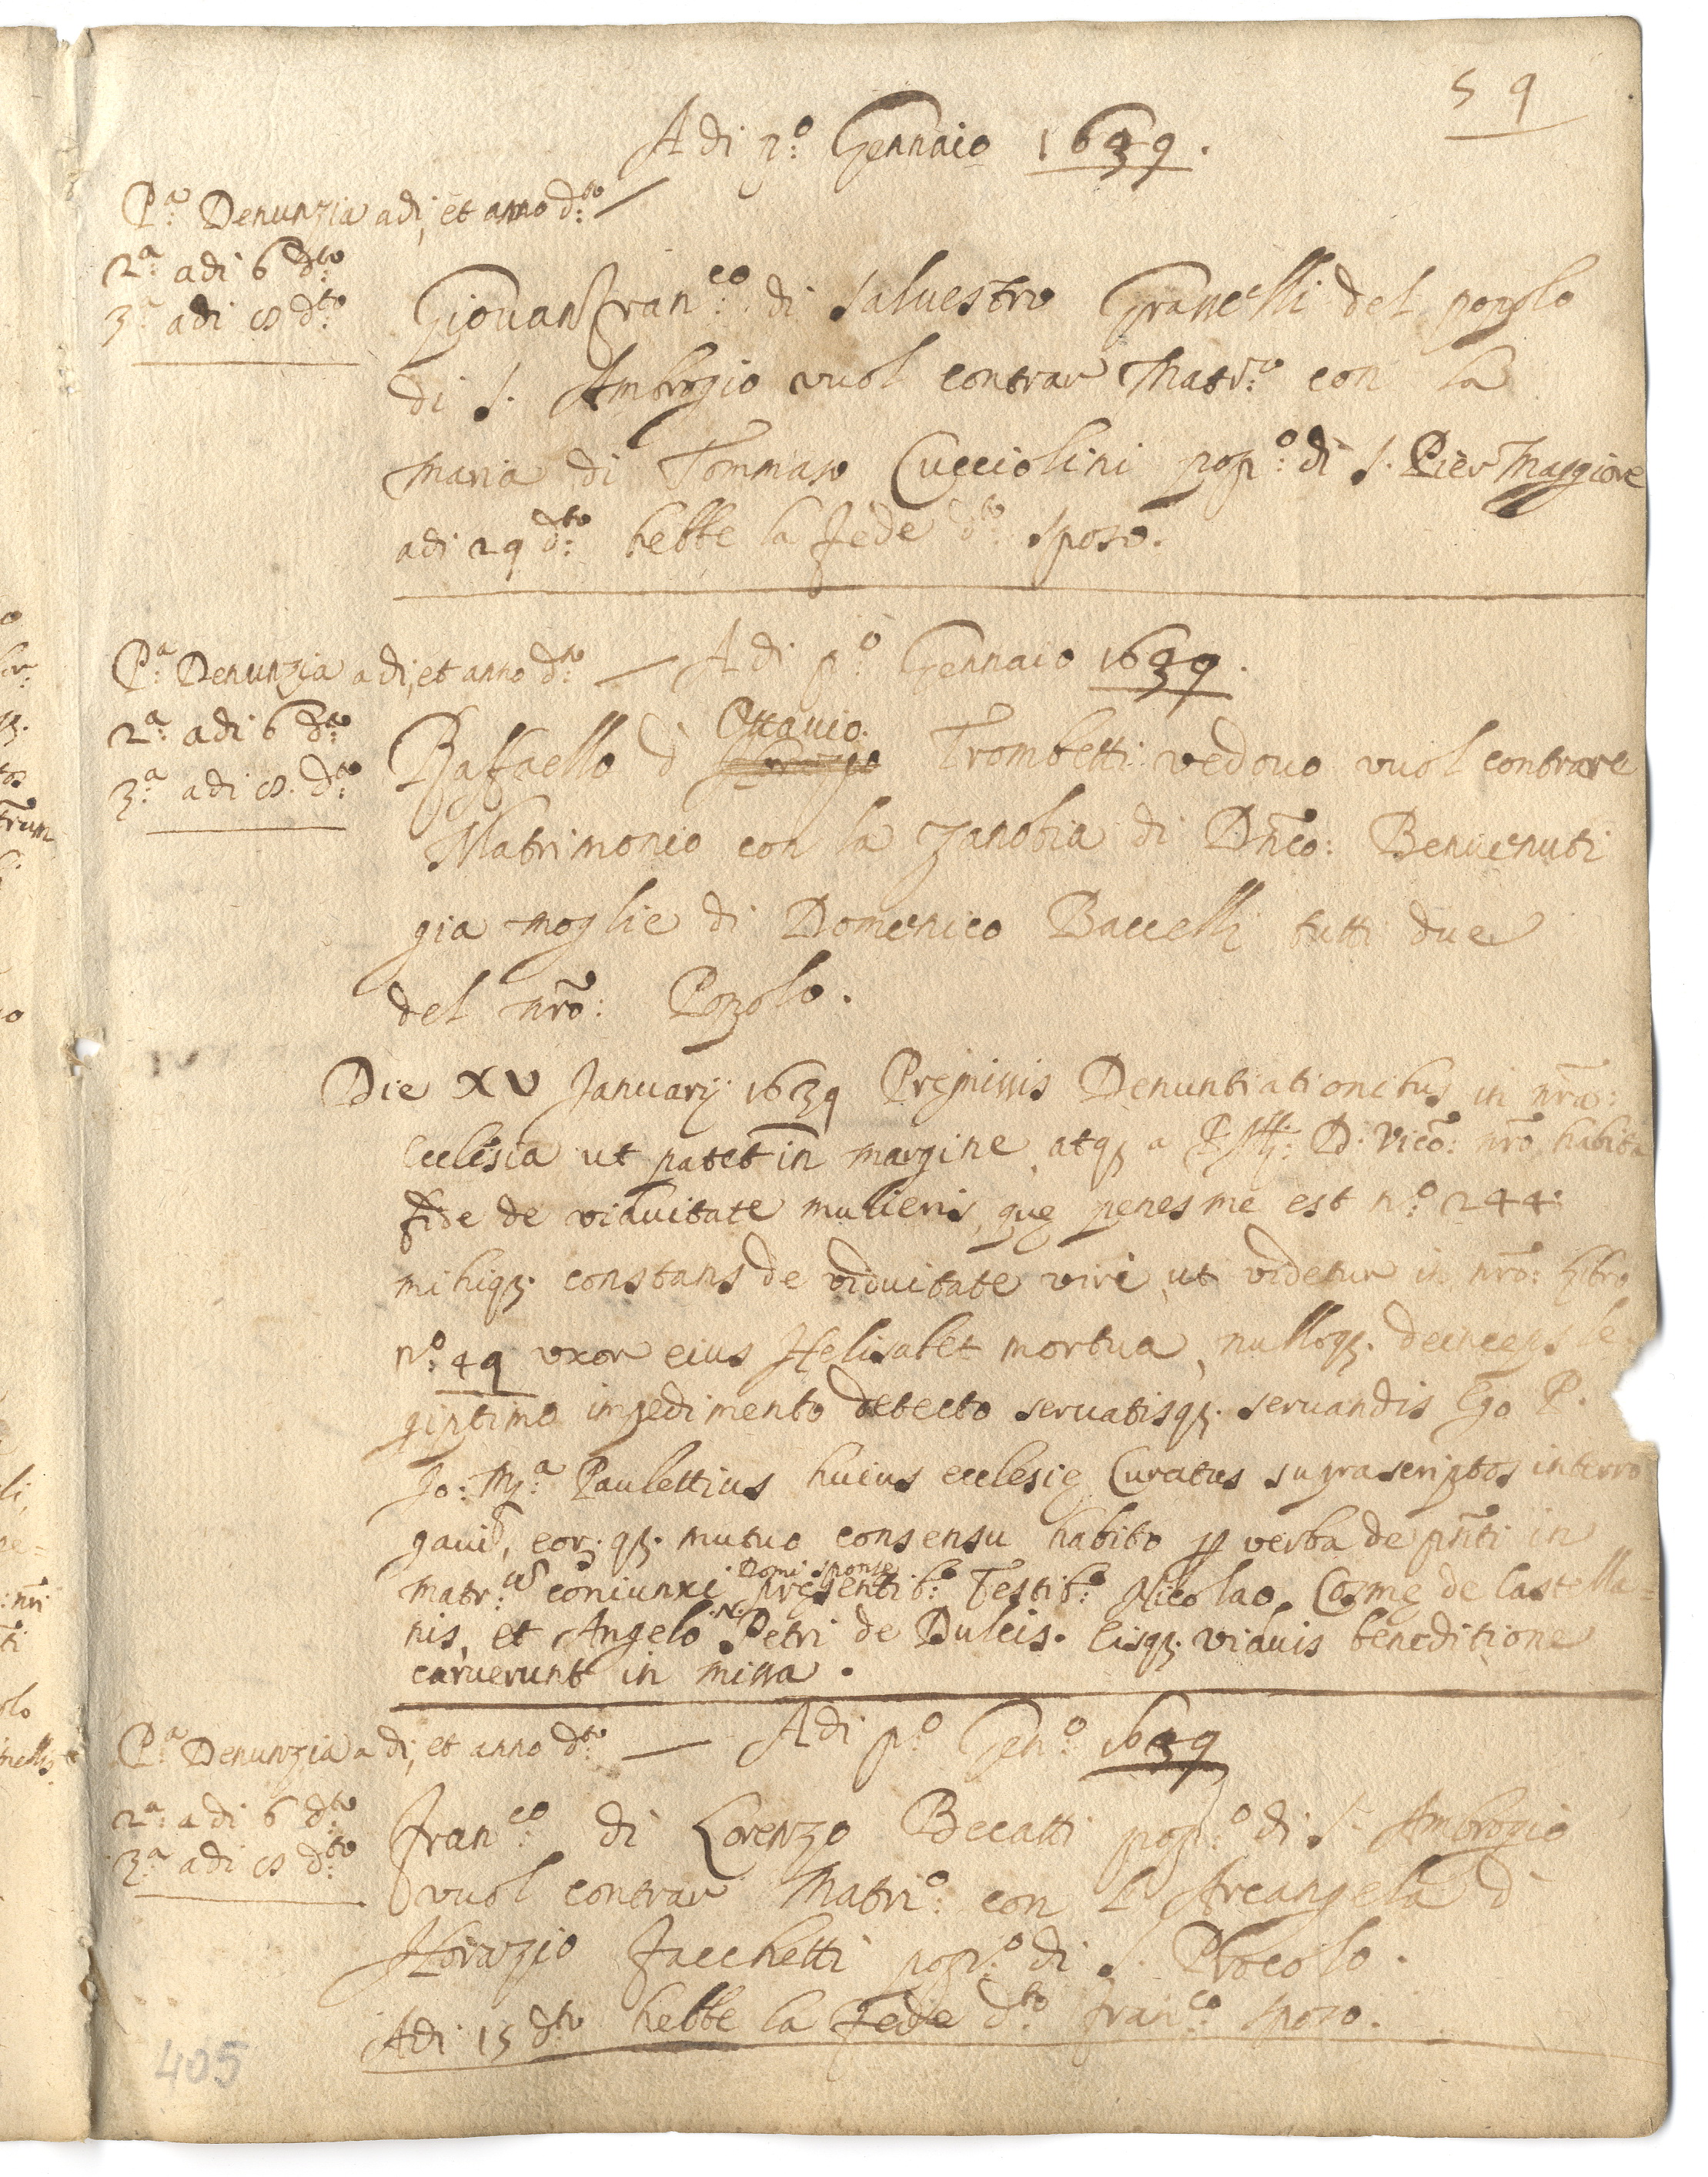 59
Adi p.º Gennaio 1639.
P.ª Denunzia adi, et anno d.to
2.ª adi 6 d.to
3.ª adi 8 d.to
Giovanfran.co di Salvestro Granelli del popolo
di S. Ambrogio vuol contrar Matr.º con la
Maria di Tommaso Cucciolini pop.º di S. Pier Maggiore
adi 29 d.to hebbe la fede d.to sposo.
P.ª Denunzia adi, et anno d.to — Adi p.º Gennaio 1639.
2.ª adi 6 d.to
3.ª adi 8. d.to
Ottavio.
Raffaello d Trombetti vedovo vuol contrare
Matrimonio con la Zanobia di Dn̄co: Benvenuti
gia moglie di Domenico Baccelli tutti due
del nr̄o: Popolo.
Die XV Januarij 1639 Premissis Denuntiationibus in nr̄a:
Ecclesia ut patet in margine, atq; a D. Vicō: nr̄o habita
fide de viduitate mulieris, que penes me est n.º 244.
mihiq; constans de viduitate viri, ut videtur in nr̄o: libro
n.º 49 uxor eius Helisabet mortua, nulloq; deinceps le
giptimo impedimento detecto servatisq; servandis Ego P.
Jo: M.ª Paulettius huius ecclesie Curatus suprascriptos interro
gavi, eor. q; mutuo consensu habito p verba de pn̄ti in
Domi sponse
matr: coniunxi presentib.º Testib.º Nicolao Cosme de Castella=
nis, et Angelo .N. Petri de Dulcis. Eisq; viduis beneditione
caruerunt in missa.
P.ª Denunzia adi, et anno d.to — Adi p.º Gen.º 1639
2.ª adi 6 d.to
3.ª adi 8 d.to
Fran.co di Lorenzo Becatti pop.º di S. Ambrogio
vuol contrar Matri.º con L'Arcangela d
Horazio Facchetti pop.º di S. Procolo.
Adi 15 d.to hebbe la fede d.to Fran.co sposo.
405